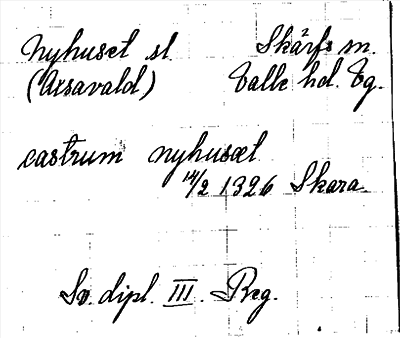 Nyhuset sl. Skärfs sn.
(Axavald) Valle hd. Vg.
castrum nyhusæt
14/2 1326 Skara.
Sv. dipl. III. Reg.